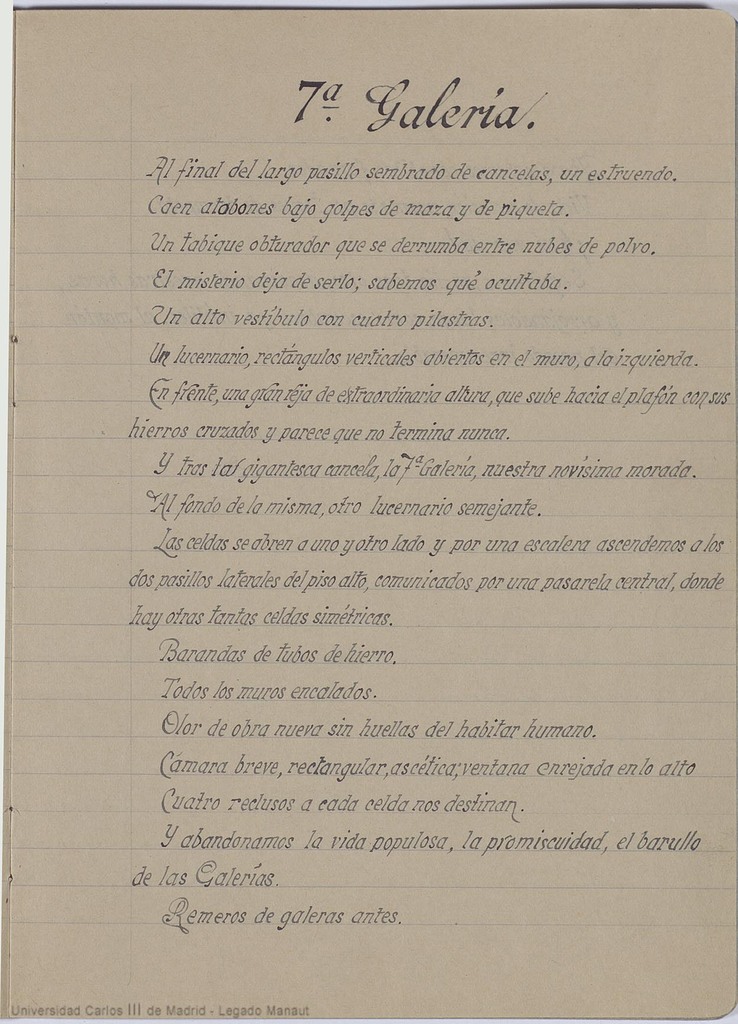 7ª Galería.
Al final del largo pasillo sembrado de cancelas, un estruendo.
Caen atobones bajo golpes de maza y de piqueta.
Un tabique obturador que se derrumba entre nubes de polvo.
El misterio deja de serlo; sabemos qué ocultaba.
Un alto vestíbulo con cuatro pilastras.
Un lucernario, rectángulos verticales abiertos en el muro, a la izquierda.
En frente, una gran reja de extraordinaria altura, que sube hacia el plafón con sus
hierros cruzados y parece que no termina nunca.
Y tras la gigantesca cancela, la 7ª Galería, nuestra novísima morada.
Al fondo de la misma, otro lucernario semejante.
Las celdas se abren a uno y otro lado y por una escalera ascendemos a los
dos pasillos laterales del piso alto, comunicados por una pasarela central, donde
hay otras tantas celdas simétricas.
Barandas de tubos de hierro.
Todos los muros encalados.
Olor de obra nueva sin huellas del habitar humano.
Cámara breve, rectangular, ascética; ventana enrejada en lo alto
Cuatro reclusos a cada celda nos destinan.
Y abandonamos la vida populosa, la promiscuidad, el barullo
de las Galerías.
Remeros de galeras antes.
Universidad Carlos III de Madrid - Legado Manaut